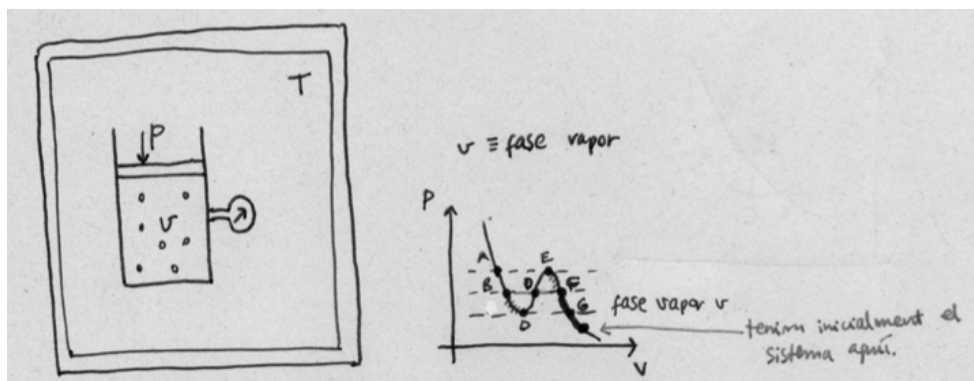 T
P
v
v ≡ fase vapor
P
A
E
B
D
F
G
D
fase vapor v
tenim inicialment el
sistema aquí.
V